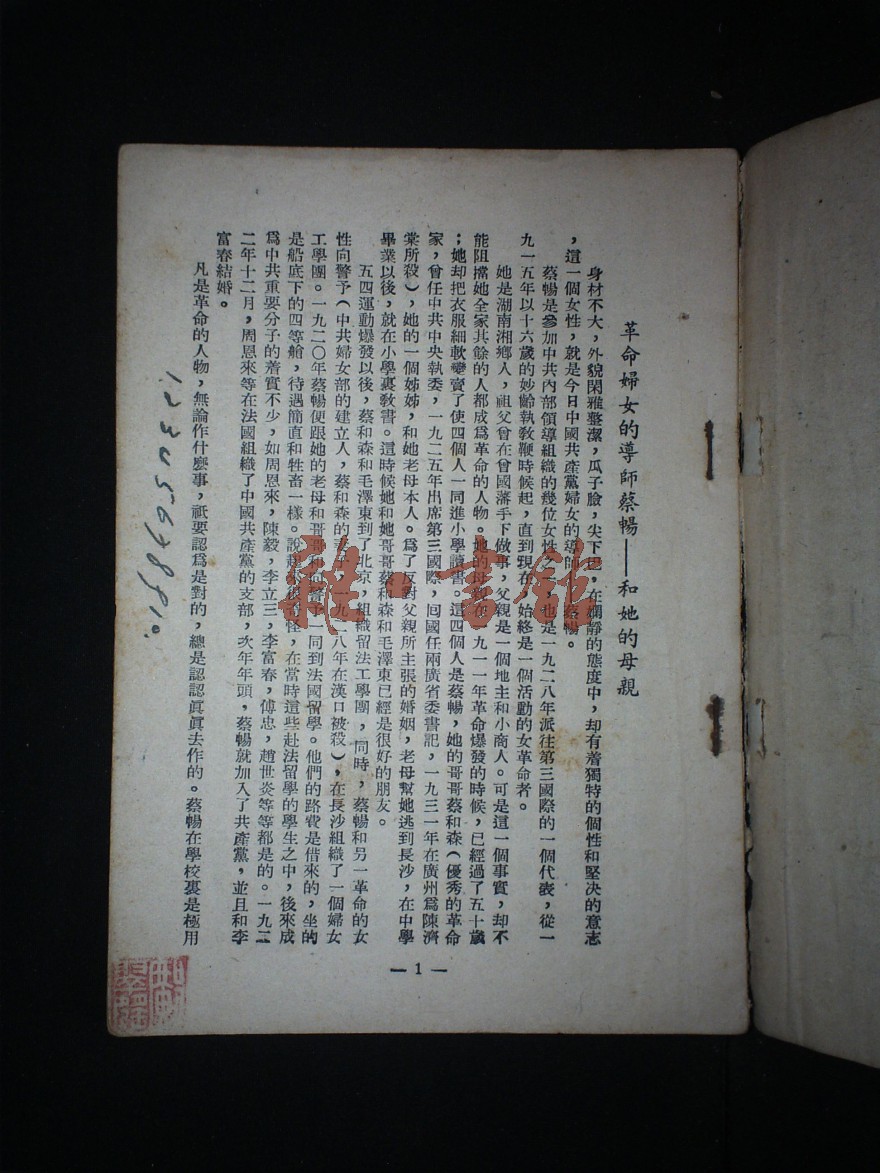 革命婦女的導師蔡暢——和她的母親
身材不大，外貌閑雅整潔，瓜子臉，尖下巴，在嫻靜的態度中，却有着獨特的個性和堅决的意志
，這一個女性，就是今日中國共產黨婦女的導師——蔡暢。
蔡暢是參加中共內部領導組織的幾位女性之一，也是一九二八年派往第三國際的一個代表，從一
九一五年以十六歲的妙齡執敎鞭時候起，直到現在，始終是一個活動的女革命者。
她是湖南湘鄉人，祖父曾在曾國藩手下做事，父親是一個地主和小商人。可是這一個事實，却不
能阻擋她全家其餘的人都成爲革命的人物。她的母親在一九一一年革命爆發的時候，已經過了五十歲
；她却把衣服細軟變賣了使四個人一同進小學讀書。這四個人是蔡暢，她的哥哥蔡和森（優秀的革命
家，曾任中共中央執委，一九二五年出席第三國際，囘國任兩廣省委書記，一九三一年在廣州爲陳濟
棠所殺），她的一個姊姊，和她老母本人。爲了反對父親所主張的婚姻，老母幫她逃到長沙，在中學
畢業以後，就在小學裏敎書。這時候她和她哥哥蔡和森和毛澤東已經是很好的朋友。
五四運動爆發以後，蔡和森和毛澤東到了北京，組織留法工學團，同時，蔡暢和另一革命的女
性向警予（中共婦女部的建立人，蔡和森的妻子，一九二八年在漢口被殺），在長沙組織了一個婦女
工學團。一九二〇年蔡暢便跟她的老母和哥哥和向警予一同到法國留學。他們的路費是借來的，坐的
是船底下的四等艙，待遇簡直和牲畜一樣。說起來很奇怪，在當時這些赴法留學的學生之中，後來成
爲中共重要分子的着實不少，如周恩來，陳毅，李立三，李富春，傅忠，趙世炎等等都是的。一九二
二年十二月，周恩來等在法國組織了中國共產黨的支部，次年年頭，蔡暢就加入了共產黨，並且和李
富春結婚。
凡是革命的人物，無論作什麽事，祇要認爲是對的，總是認認眞眞去作的。蔡暢在學校裏是極用
— 1 —